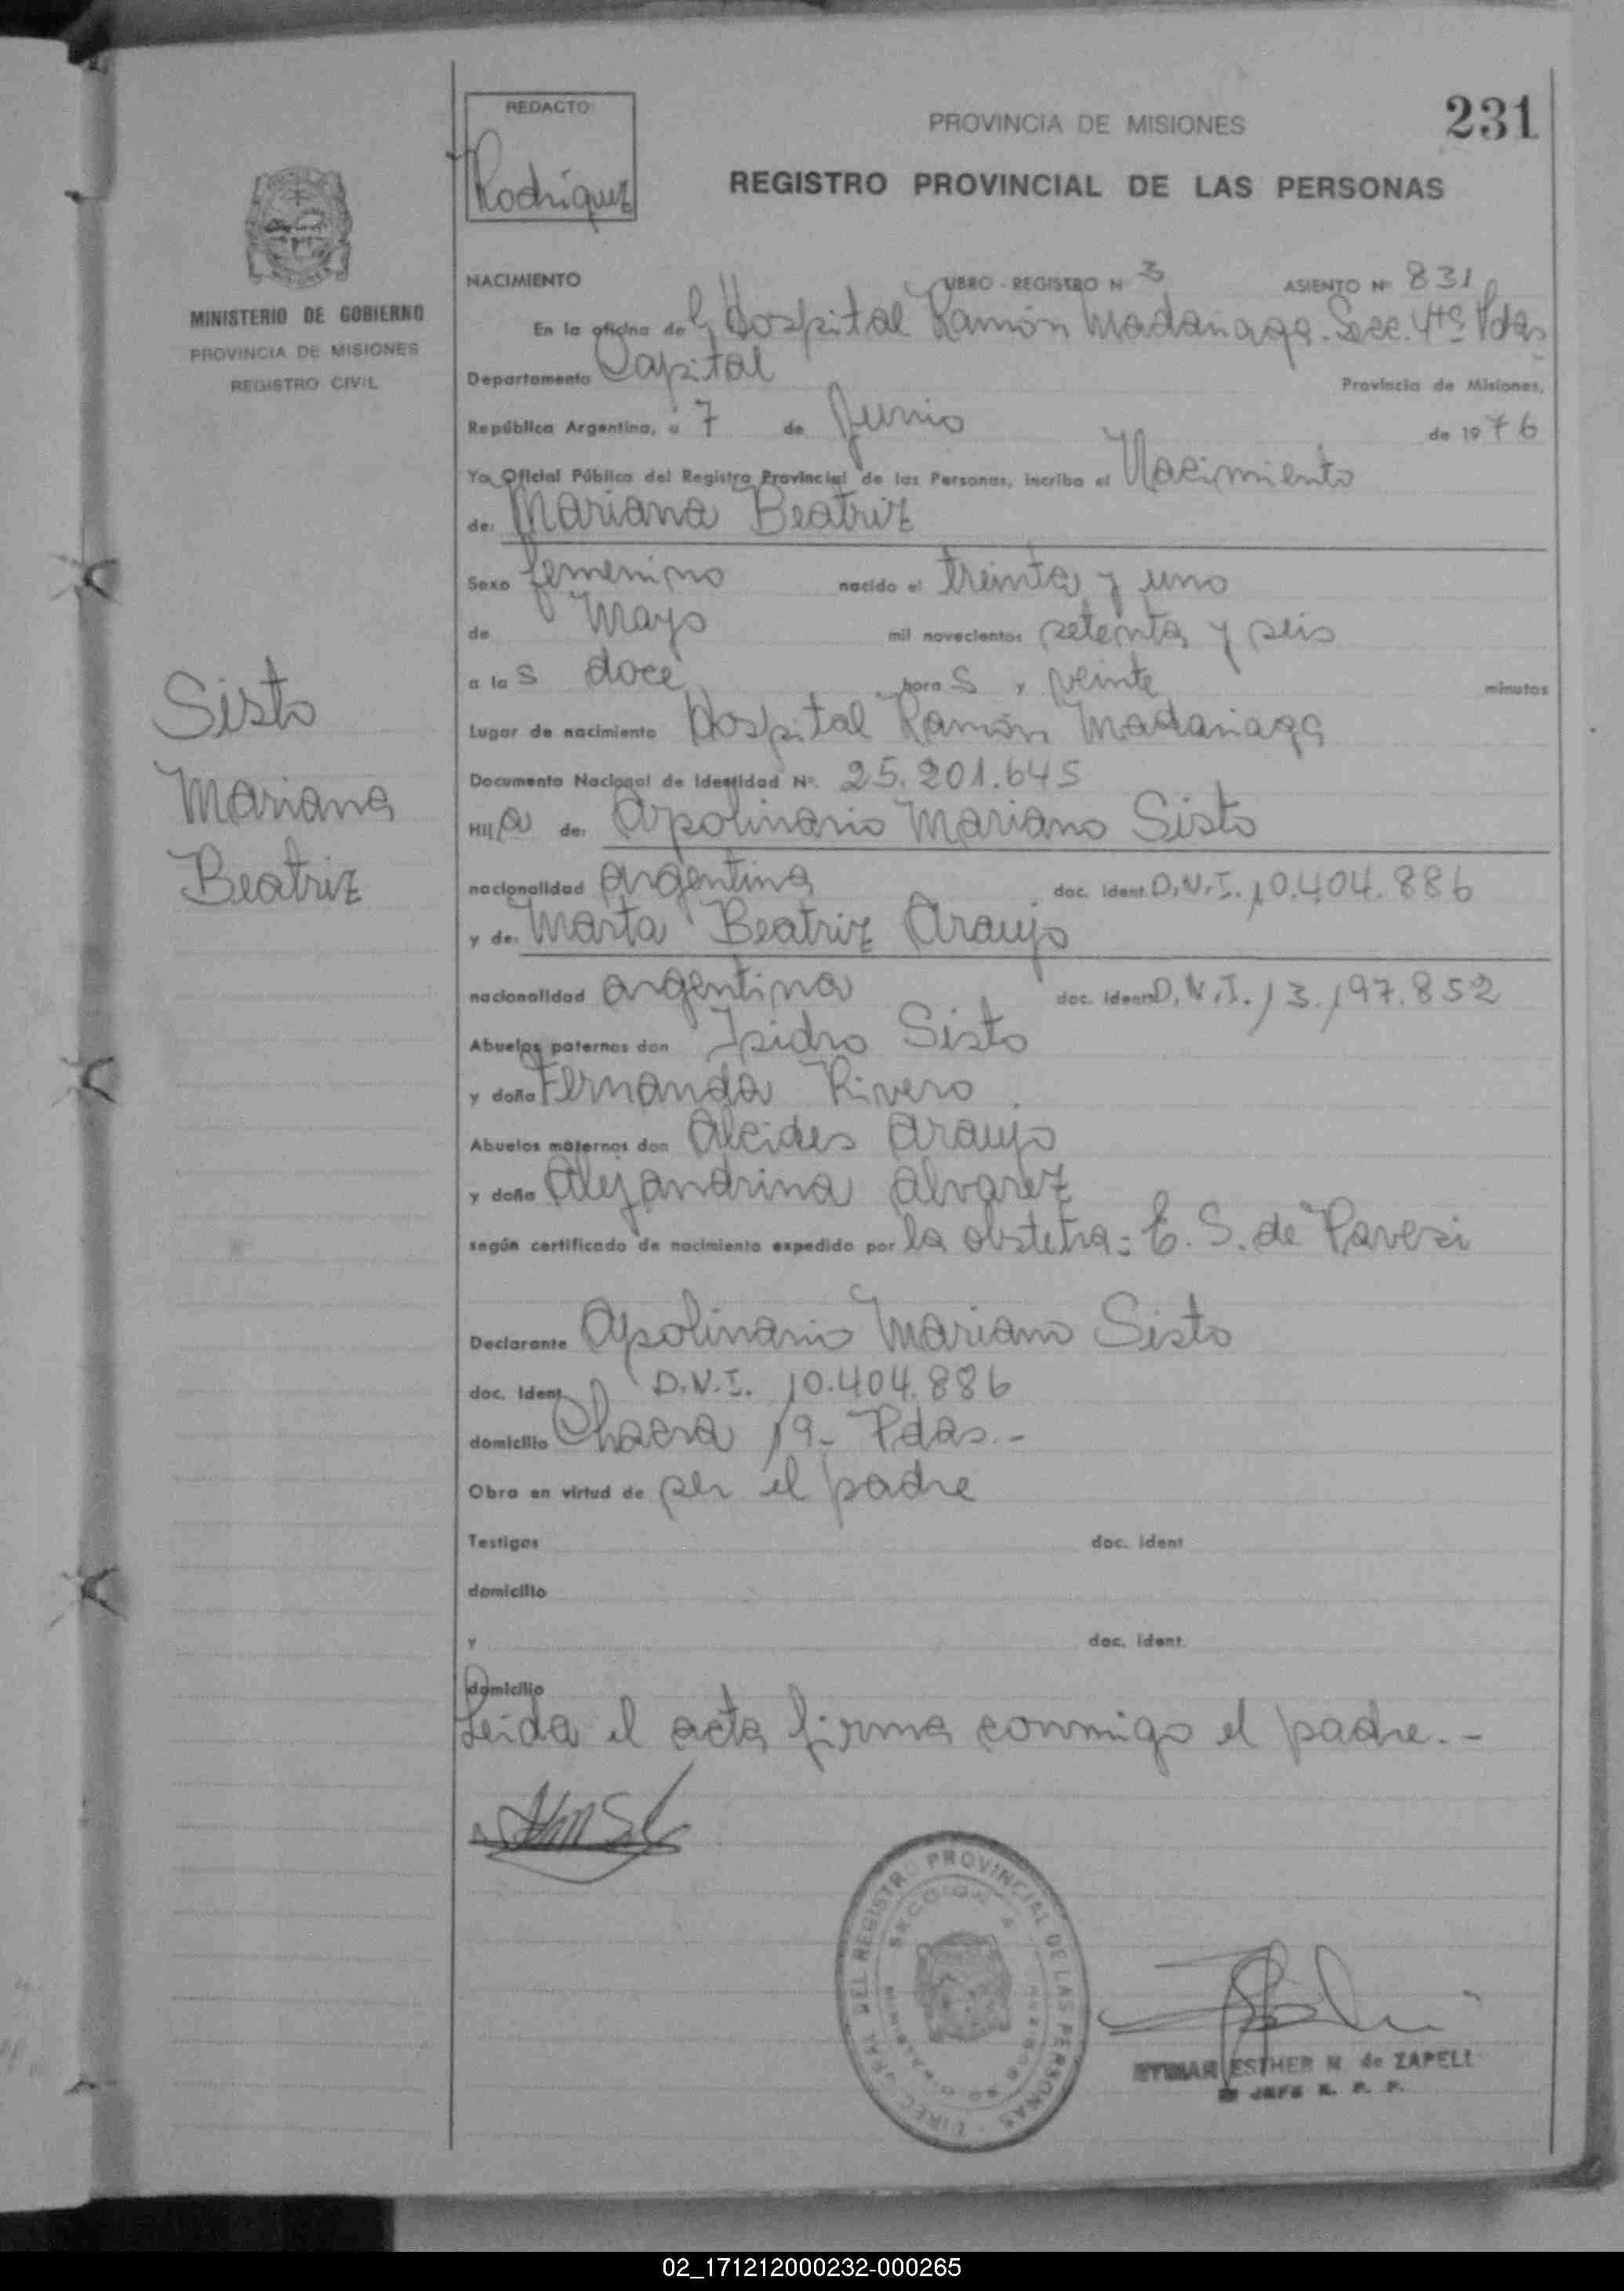 231
REDACTO:
Rodriguez
PROVINCIA DE MISIONES
REGISTRO PROVINCIAL DE LAS PERSONAS
MINISTERIO DE GOBIERNO
PROVINCIA DE MISIONES
REGISTRO CIVIL
NACIMIENTO LIBRO - REGISTRO N 3 ASIENTO Nº 831
En la oficina de Hospital Ramón Madariaga. Secc. 4ta Pdas
Departamento Capital Provincia de Misiones,
República Argentina, a 7 de Junio de 1976
Yo Oficial Público del Registro Provincial de las Personas, incribo el Nacimiento
de: Mariana Beatriz
Sexo femenino nacido el treinta y uno
de Mayo mil novecientos setenta y seis
a las doce horas y veinte minutos
Lugar de nacimiento Hospital Ramón Madariaga
Documento Nacional de Identidad Nº. 25.201.645
Hija de: Apolinario Mariano Sisto
nacionalidad argentina doc. ident. D.N.I. 10.404.886
y de: Marta Beatriz Araujo
nacionalidad argentina doc. ident. D.N.I. 13.197.852
Abuelos paternos don Isidro Sisto
y doña Fernanda Rivero
Abuelos maternos don Alcides Araujo
y doña Alejandrina Alvarez
según certificado de nacimiento expedido por la obstetra: E. S. de Pavesi
Declarante Apolinario Mariano Sisto
doc. ident. D.N.I. 10.404.886
domicilio Chacra 19- Pdas.-
Obra en virtud de ser el padre
Testigos doc. ident
domicilio
y doc. ident.
domicilio
Leida el acta firma conmigo el padre.-
Sisto
Mariana
Beatriz
DEL REGISTRO PROVINCIAL DE LAS PERSONAS
SECCION 4
ESTHER M. de ZAPELL
JEFE R. P. P.
02_171212000232-000265